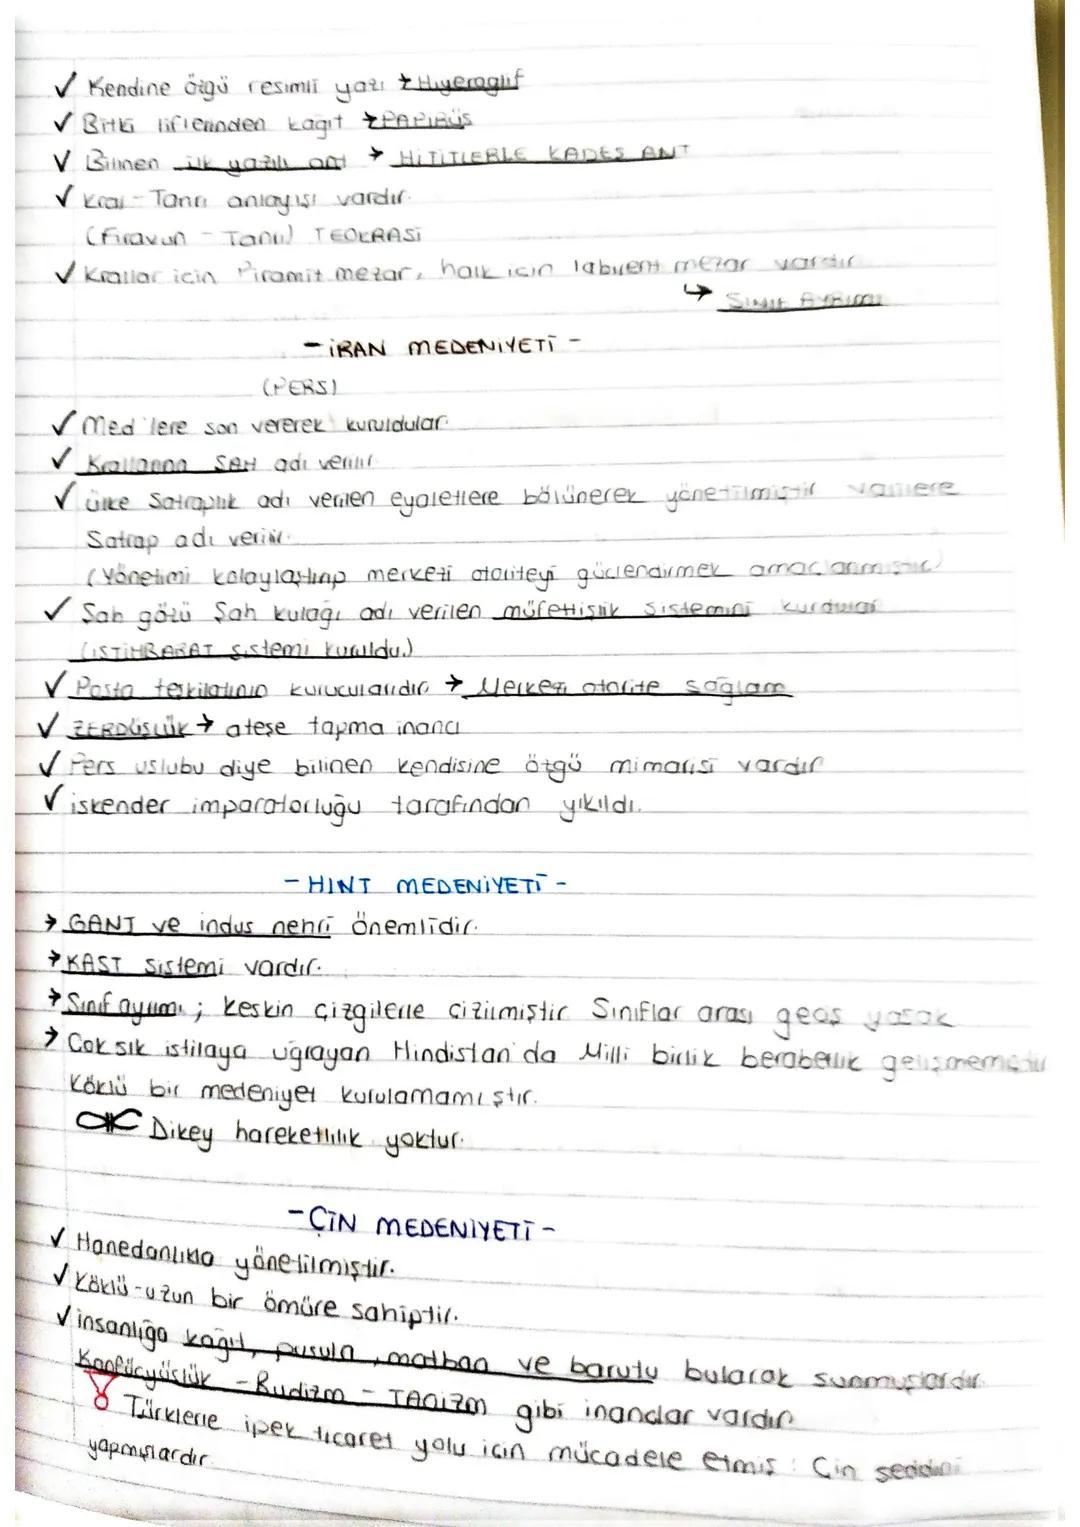 ✓ Kendine özgü resimli yazı → Hiyeroglif
✓ Bitki liflerinden kağıt → PAPİRÜS
✓ Bilinen ilk yazılı ant → HİTİTLERLE KADEŞ ANT
✓ Kral - Tanrı anlayışı vardır.
(Firavun - Tanrı) TEOKRASİ
✓ Krallar için Piramit mezar, halk için labirent mezar vardır
↳ SINIF AYRIMI
- İRAN MEDENİYETİ -
(PERS)
✓ Med'lere son vererek kuruldular.
✓ Krallarına ŞAH adı verilir.
✓ ülke Satraplık adı verilen eyaletlere bölünerek yönetilmiştir valilere
Satrap adı verilir.
(Yönetimi kolaylaştırıp merkezi otoriteyi güçlendirmek amaçlanmıştır)
✓ Şah gözü Şah kulağı adı verilen müfettişlik sistemini kurdular
(İSTİHBARAT sistemi kuruldu.)
✓ Posta teşkilatının kurucularıdır → Merkezi otorite sağlam
✓ ZERDÜŞLÜK → ateşe tapma inancı
✓ Pers uslubu diye bilinen kendisine özgü mimarisi vardır
✓ iskender imparatorluğu tarafından yıkıldı.
- HINT MEDENİYETİ -
→ GANJ ve indus nehri önemlidir.
→ KAST sistemi vardır.
→ Sınıf ayrımı ; keskin çizgilerle çizilmiştir Sınıflar arası geçiş yasak
→ Çok sık istilaya uğrayan Hindistan'da Milli birlik beraberlik gelişmemiştir
Köklü bir medeniyet kurulamamıştır.
Dikey hareketlilik yoktur.
- ÇİN MEDENİYETİ -
✓ Hanedanlıkla yönetilmiştir.
✓ Köklü - uzun bir ömüre sahiptir.
✓ insanlığa kağıt, pusula, matbaa ve barutu bularak sunmuşlardır.
Konfüçyüslük - Budizm - TAOizm gibi inançlar vardır
Türklerle ipek ticaret yolu için mücadele etmiş : Çin seddini
yapmışlardır.